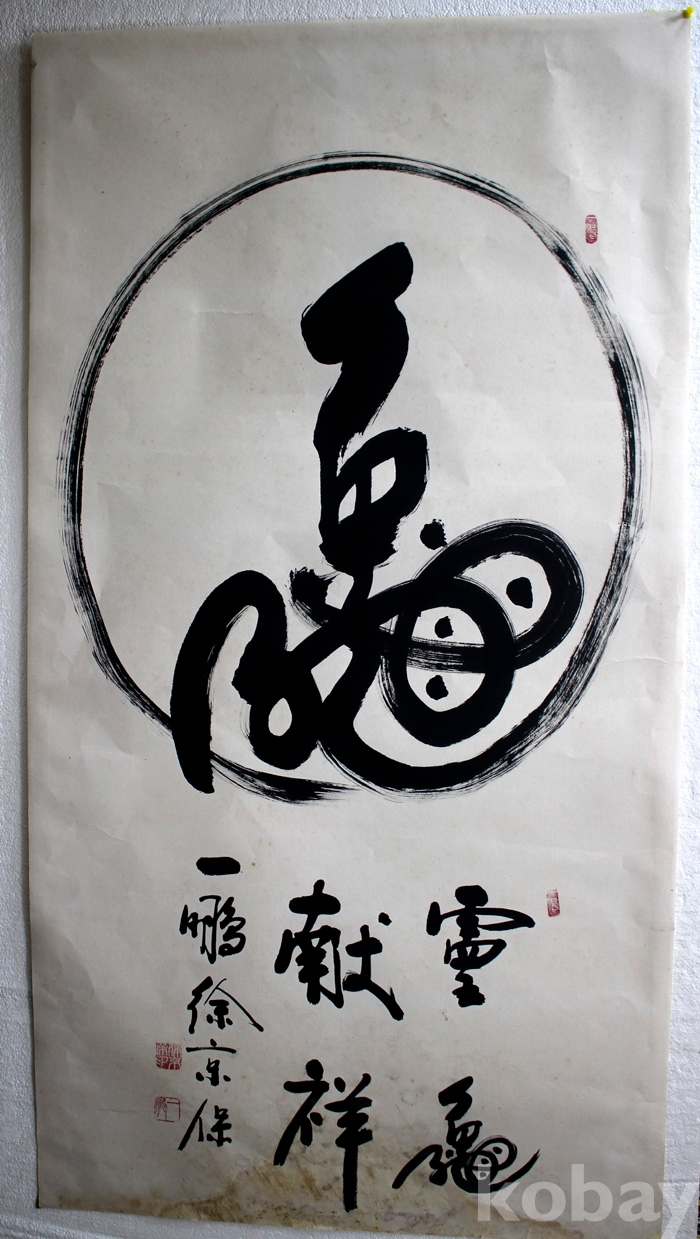 龜
靈龜
献祥
一鵬徐京保
kobay